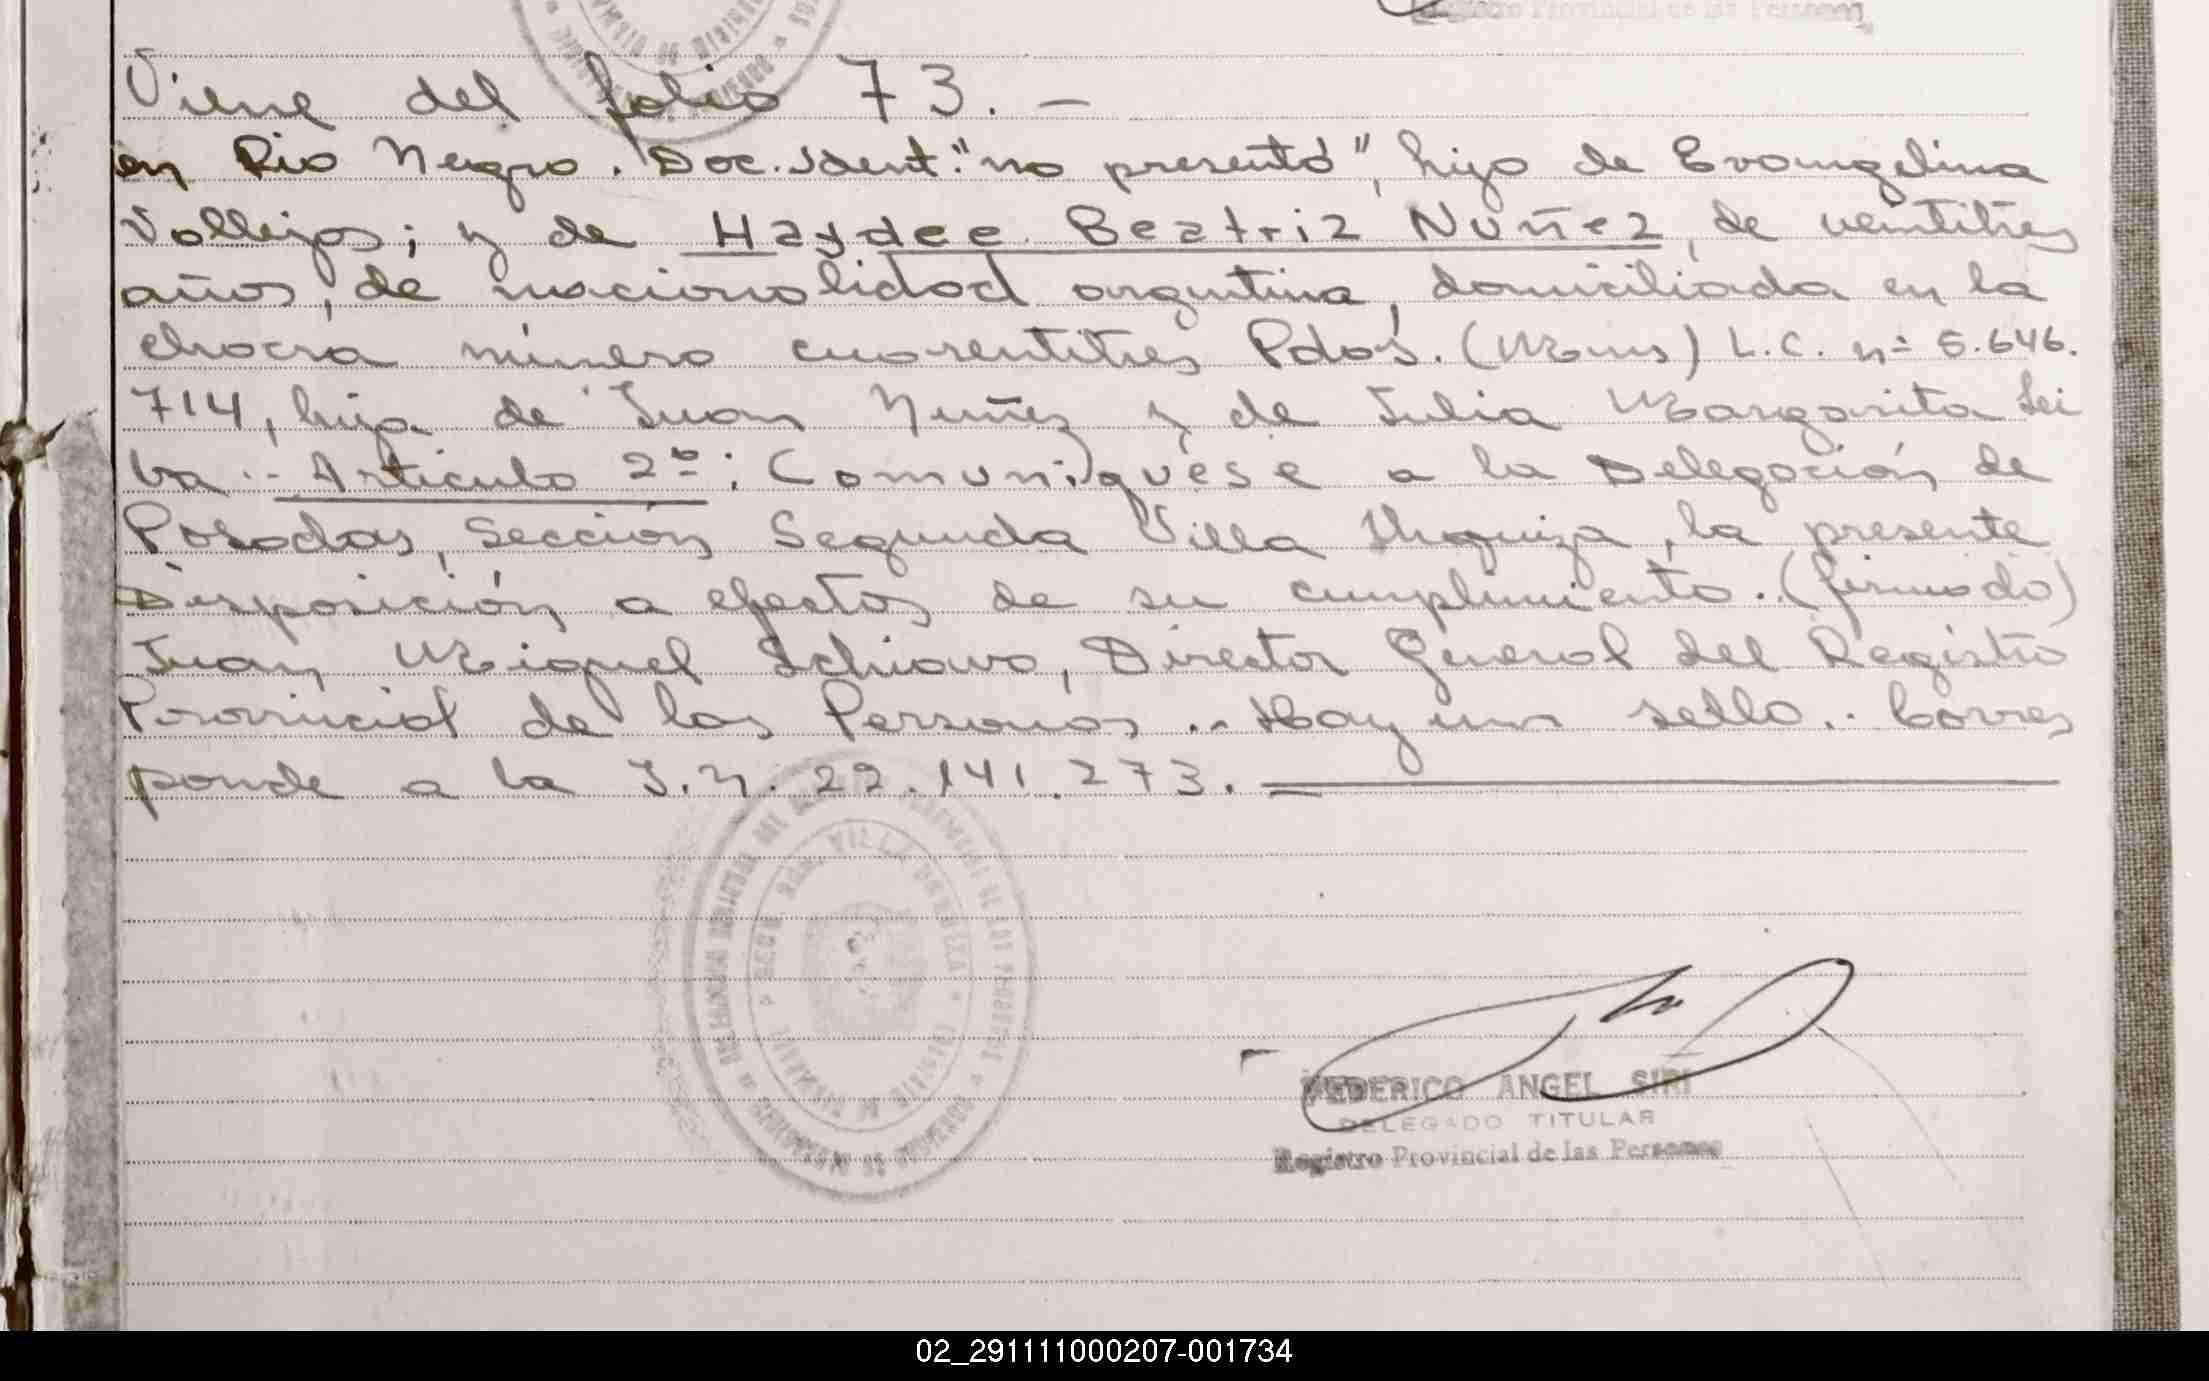 Registro Provincial de las Personas
Viene del folio 73. —
en Rio Negro. Doc. Ident: "no presentó", hijo de Evangelina
Vallejos; y de Haydee Beatriz Nuñez, de veintitres
años, de nacionalidad argentina, domiciliada en la
chacra número cuarentitres Pdas. (Mnes) L.C. nº 5.646.
714, hija de Juan Nuñez y de Julia Margarita Lei
va.- Articulo 2º: Comuníquese a la Delegación de
Posadas, Sección Segunda Villa Urquiza, la presente
Disposición a efectos de su cumplimiento.. (firmado)
Juan Miguel Schiavo, Director General del Registro
Provincial de las Personas.- Hay un sello.- Corres
ponde a la I.N. 22.141.273.
SECC. 2DA. VILLA URQUIZA
FEDERICO ANGEL SIRI
DELEGADO TITULAR
Registro Provincial de las Personas
02_291111000207-001734